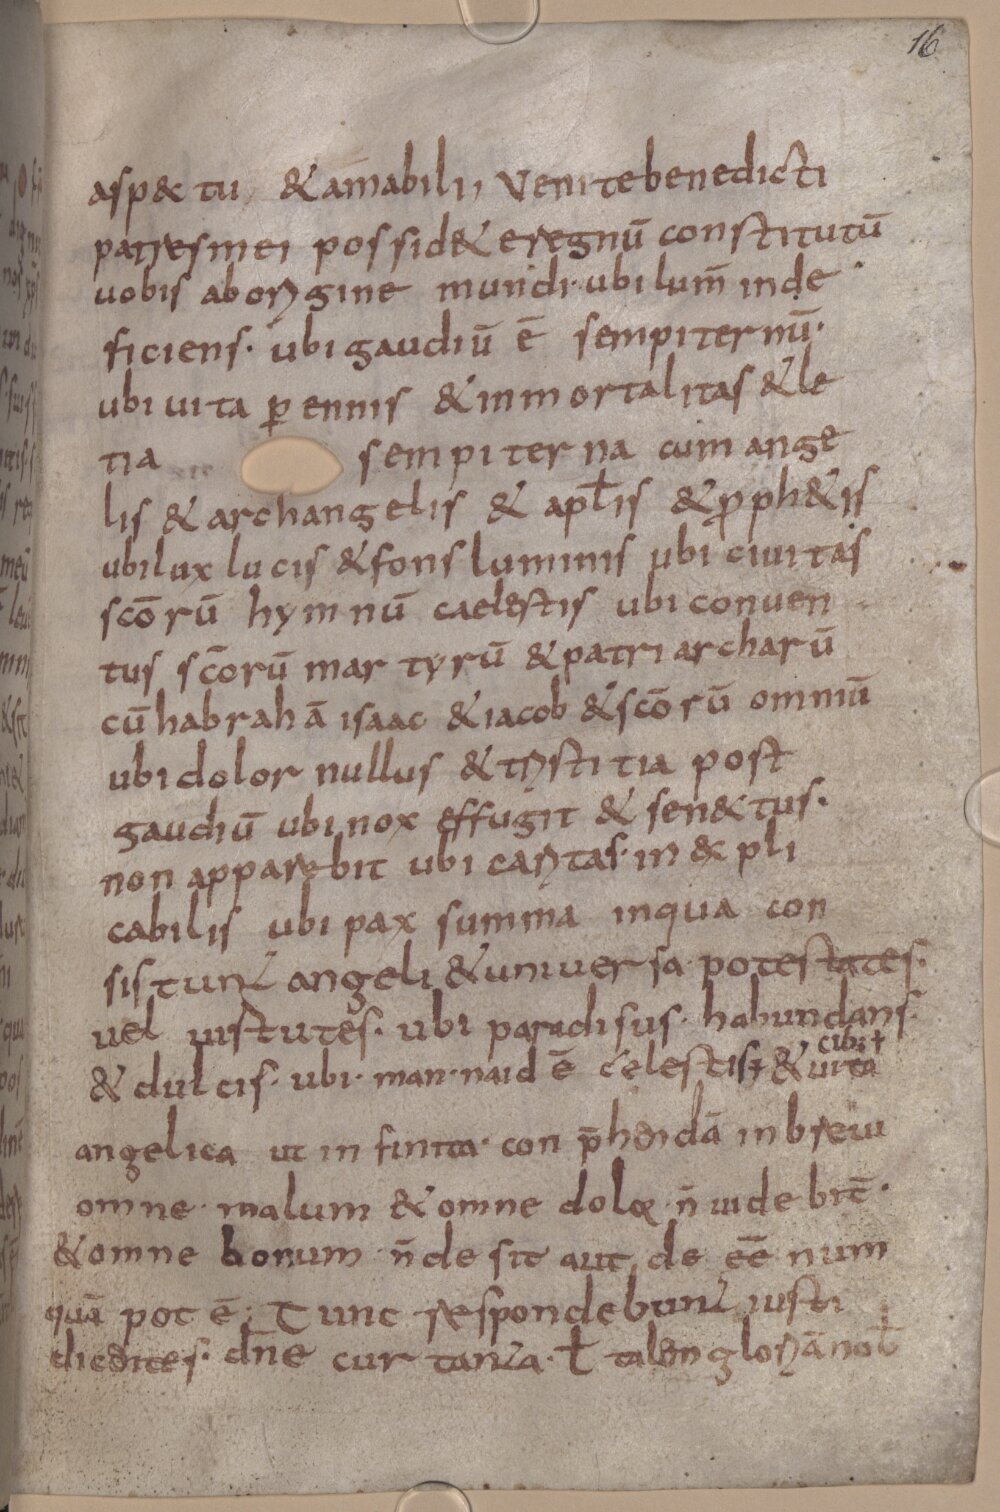 16
asp& tu, & amabili, Venite benedicti
patres mei possid& e regnū constitutū
uobis ab origine mundi· ubi lum̄ inde
ficiens· ubi gaudiū ē sempiternū·
ubi uita ꝑennis & inmortalitas & le
tia sempiterna cum ange
lis & archangelis & apłis & ꝓph&is
ubi lux lucis & fons luminis ubi ciuitas
scōrū hymnū caelestis ubi conuen
tus sc̄orū martyrū & patriarcharū
cū habrahā isaac & iacob & scōrū omniū
ubi dolor nullus & tristitia post
gaudiū ubi nox effugit & sen&tus·
non apparebit ubi caritas· in&pli
cabilis ubi pax summa in qua con
sistunt angeli & uniuersa potestates·
uel uistutes· ubi paradisus· habundans·
& dulcis· ubi· man·na id ē celestis & uita
cib;
angelica ut infinita· con p̄hendā in breui
omne· malum & omne dolor n̄ uidebit̄·
& omne bonum· n̄ desit aut de eē num
quā pot ē; Tunc respondebunt iusti
dicentes· dn̄e cur tanta· ł talem gloriā nob̄